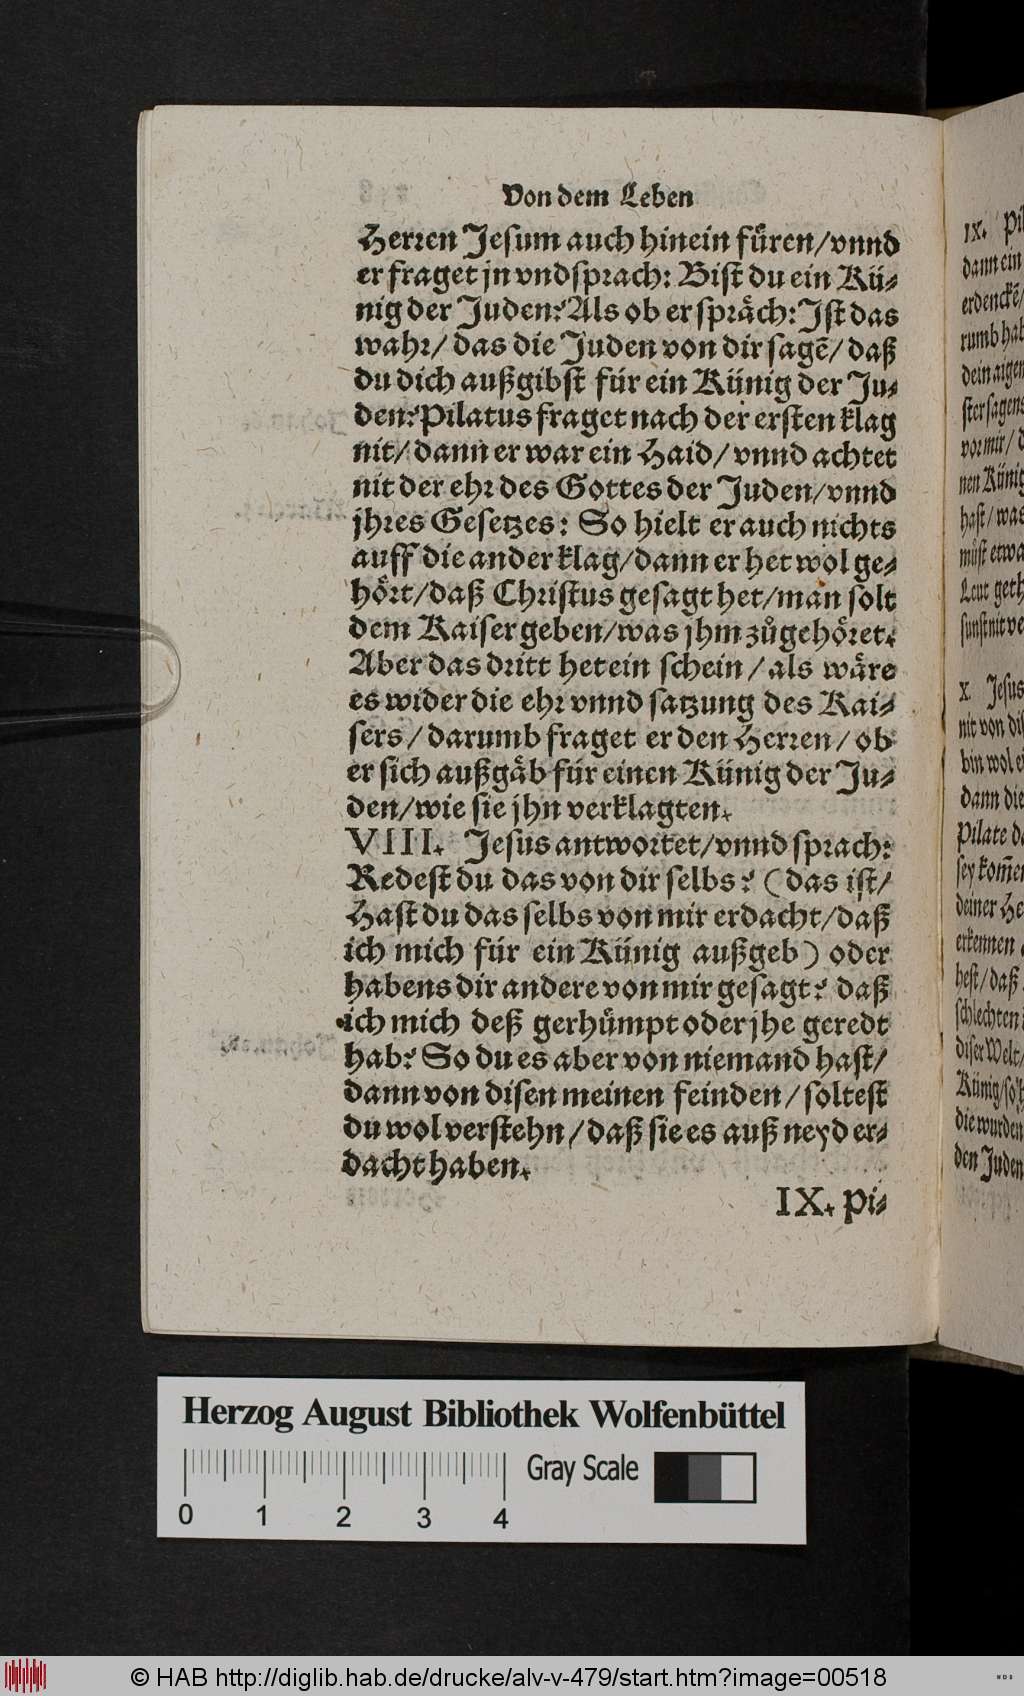 Von dem Leben
Herren Jesum auch hinein füren/vnnd
er fraget jn vnd sprach: Bist du ein Kü⸗
nig der Juden? Als ob er spräch: Jst das
wahr/ das die Juden von dir sagẽ/ daß
du dich außgibst für ein Künig der Ju⸗
den? Pilatus fraget nach der ersten klag
nit/ dann er war ein Haid/ vnnd achtet
nit der ehr des Gottes der Juden/vnnd
jhres Gesetzes: So hielt er auch nichts
auff die ander klag/dann er het wol ge⸗
hört/daß Christus gesagt het/man solt
dem Kaiser geben/was jhm zůgehöret.
Aber das dritt het ein schein/als wäre
es wider die ehr vnnd satzung des Kai⸗
sers/ darumb fraget er den Herren/ ob
er sich außgäb für einen Künig der Ju⸗
den/wie sie jhn verklagten.
VIII. Jesus antwortet/vnnd sprach:
Redest du das von dir selbs? (das ist/
Hast du das selbs von mir erdacht/daß
ich mich für ein Künig außgeb) oder
habens dir andere von mir gesagt? daß
ich mich deß gerhümpt oder jhe geredt
hab? So du es aber von niemand hast/
dann von disen meinen feinden/ soltest
du wol verstehn/daß sie es auß neyd er⸗
dacht haben.
IX. Pi⸗
IX. Pil
dann ein
erdenckẽ/
rumb hab
dein aigen
ster sagens
vor mir/ d
nen Künig
hast/ was
můst etwa
Leut geth
sunst nit ve
X. Jesus
nit von dis
bin wol ei
dann die
Pilate da
sey kom̃en
deiner He
erkennen
hest/ daß
schlechten
diser Welt/
Künig/so
die wurden
den Juden
Herzog August Bibliothek Wolfenbüttel
0 1 2 3 4
Gray Scale
© HAB http://diglib.hab.de/drucke/alv-v-479/start.htm?image=00518